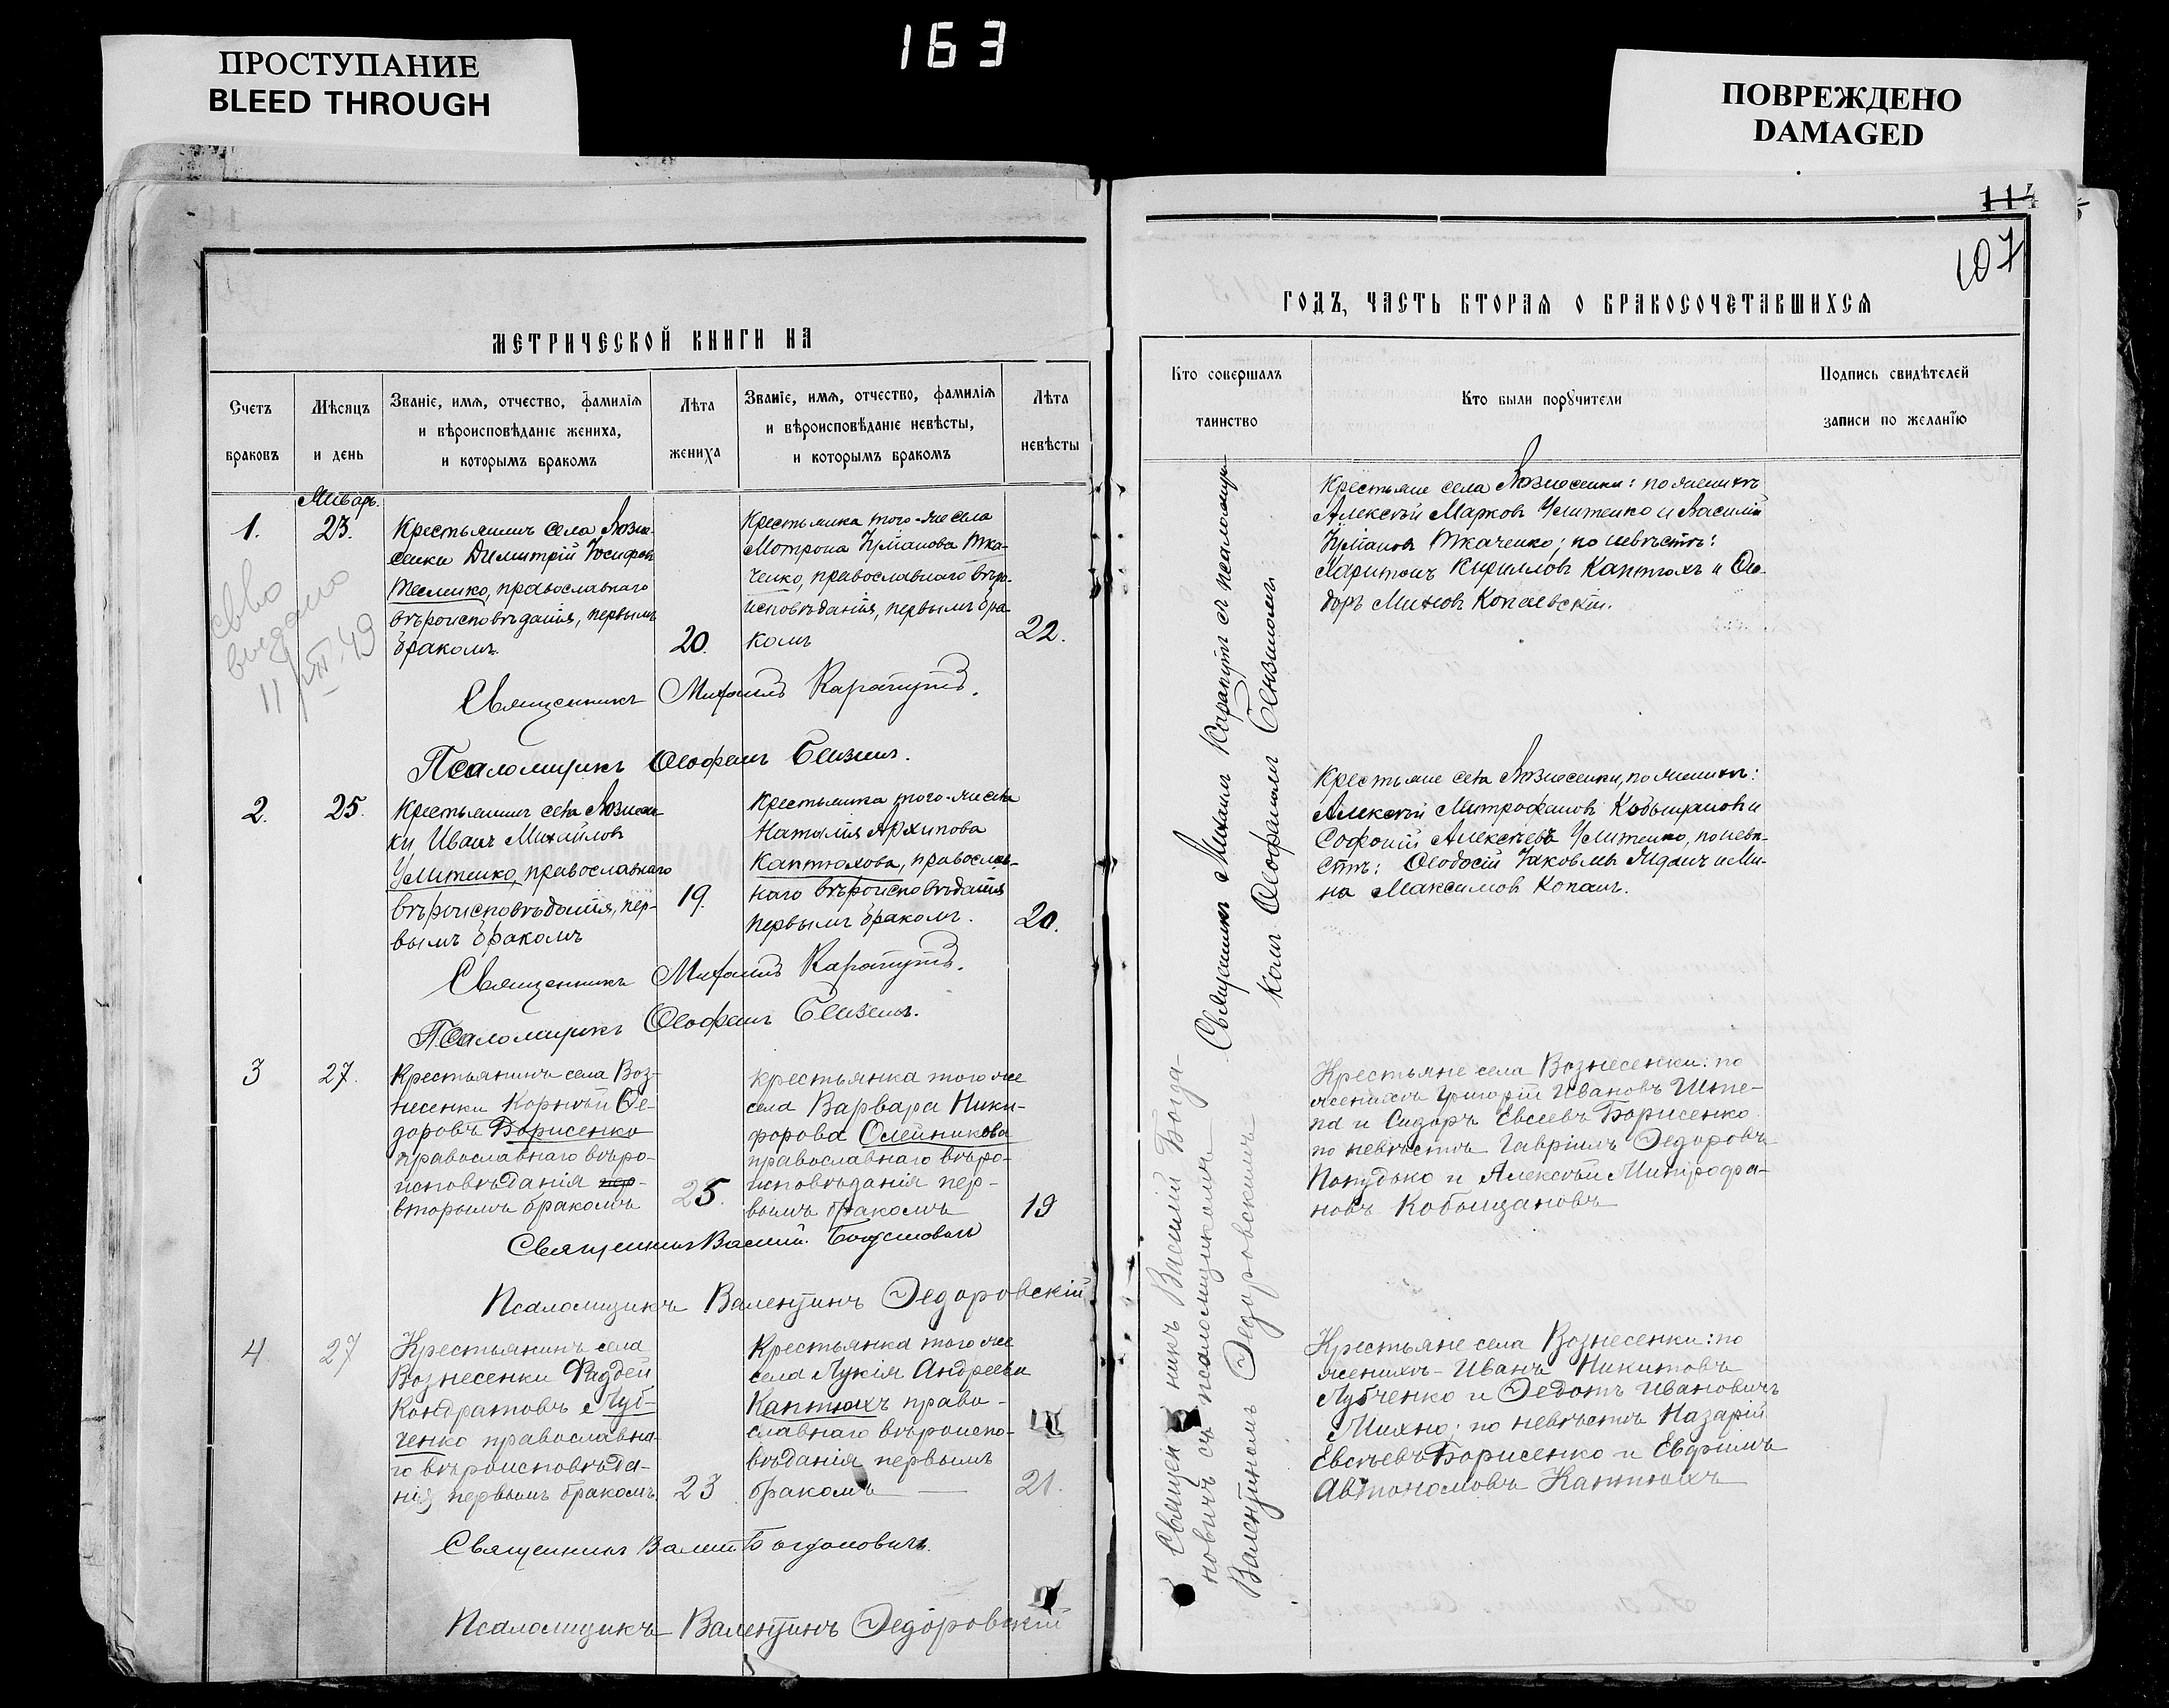 ПРОСТУПАНИЕ
BLEED THROUGH
163
ПОВРЕЖДЕНО
DAMAGED
107
МЕТРИЧЕСКОЙ КНИГИ НА
ГОДЪ, ЧАСТЬ ВТОРАЯ О БРАКОСОЧЕТАВШИХСЯ
Счетъ
браковъ
Мѣсяцъ
и день
Званіе, имя, отчество, фамилія
и вѣроисповѣданіе жениха,
и которымъ бракомъ
Лѣта
жениха
Званіе, имя, отчество, фамилія
и вѣроисповѣданіе невѣсты,
и которымъ бракомъ
Лѣта
невѣсты
Кто совершалъ
таинство
Кто были поручители
Подпись свидѣтелей
записи по желанію
Январь.
1.
23.
Крестьянинъ села Возне-
сенки Димитрій Іосифовъ
православнаго
вѣроисповѣданія, первымъ
бракомъ.
20.
Крестьянка того-же села
Мотрона Ка-
ченко, православнаго вѣро-
исповѣданія, первымъ бра
комъ
22.
Крестьяне села Вознесенки: по женихѣ
Алексѣй Марковъ Улитенко и Василій
Ткаченко; по невѣстѣ:
Харитонъ Кирилловъ Каптюхъ и Ѳео-
доръ Копаевскій.
Священникъ Михаилъ Карапутъ.
Псаломщикъ Ѳеофанъ
11/VII.49
2.
25.
Крестьянинъ села Вознесен-
ки Иванъ Михайловъ
Улитенко, православнаго
вѣроисповѣданія, пер-
вымъ бракомъ
19.
Крестьянка того-же села
Наталія Архипова
Каптюхова, православ-
наго вѣроисповѣданія
первымъ бракомъ.
20.
Крестьяне села Вознесенки, по женихѣ:
Алексѣй Митрофановъ Кобыщановъ и
Софоній Алексѣевъ Улитенко, по невѣ-
стѣ: Ѳеодосій Яковлевъ и Ми-
на Максимовъ Копань.
Священникъ Михаилъ Карапутъ.
Псаломщикъ Ѳеофанъ
Священникъ Михаилъ Карапутъ съ псаломщи-
комъ Ѳеофаномъ
3
27.
Крестьянинъ села Воз-
несенки Корнѣй Ѳе-
доровъ Борисенко
православнаго вѣро-
исповѣданія пер-
вторымъ бракомъ
25.
крестьянка того же
села Варвара Ники-
форова Олейникова
православнаго вѣро-
исповѣданія пер-
вымъ бракомъ
19
Крестьяне села Вознесенки: по
женихѣ Григорій Ивановъ Шпе-
па и Сидоръ Евсеевъ Борисенко
по невѣстѣ Гавріилъ Ѳедоровъ
и Алексѣй Митрофа-
новъ Кобыщановъ
Священникъ Василій Богдановичъ
Псаломщикъ Валентинъ Ѳедоровскій
4
27
Крестьянинъ села
Вознесенки Фаддей
Кондратовъ Луб-
ченко православна-
го вѣроисповѣда-
нія первымъ бракомъ
23
Крестьянка того же
села Лукія Андреева
Каптюхъ право-
славнаго вѣроиспо-
вѣданія первымъ
бракомъ
21.
Крестьяне села Вознесенки: по
женихѣ - Иванъ Никитовъ
Лубченко и Ѳедотъ Ивановичъ
Михно; по невѣстѣ Назарій
Евсѣевъ Борисенко и Евфимъ
Автономовъ Каптюхъ
Священникъ Василій Богдановичъ.
Псаломщикъ Валентинъ Ѳедоровскій
Священникъ Василій Богда-
новичъ съ псаломщикомъ
Валентиномъ Ѳедоровскимъ